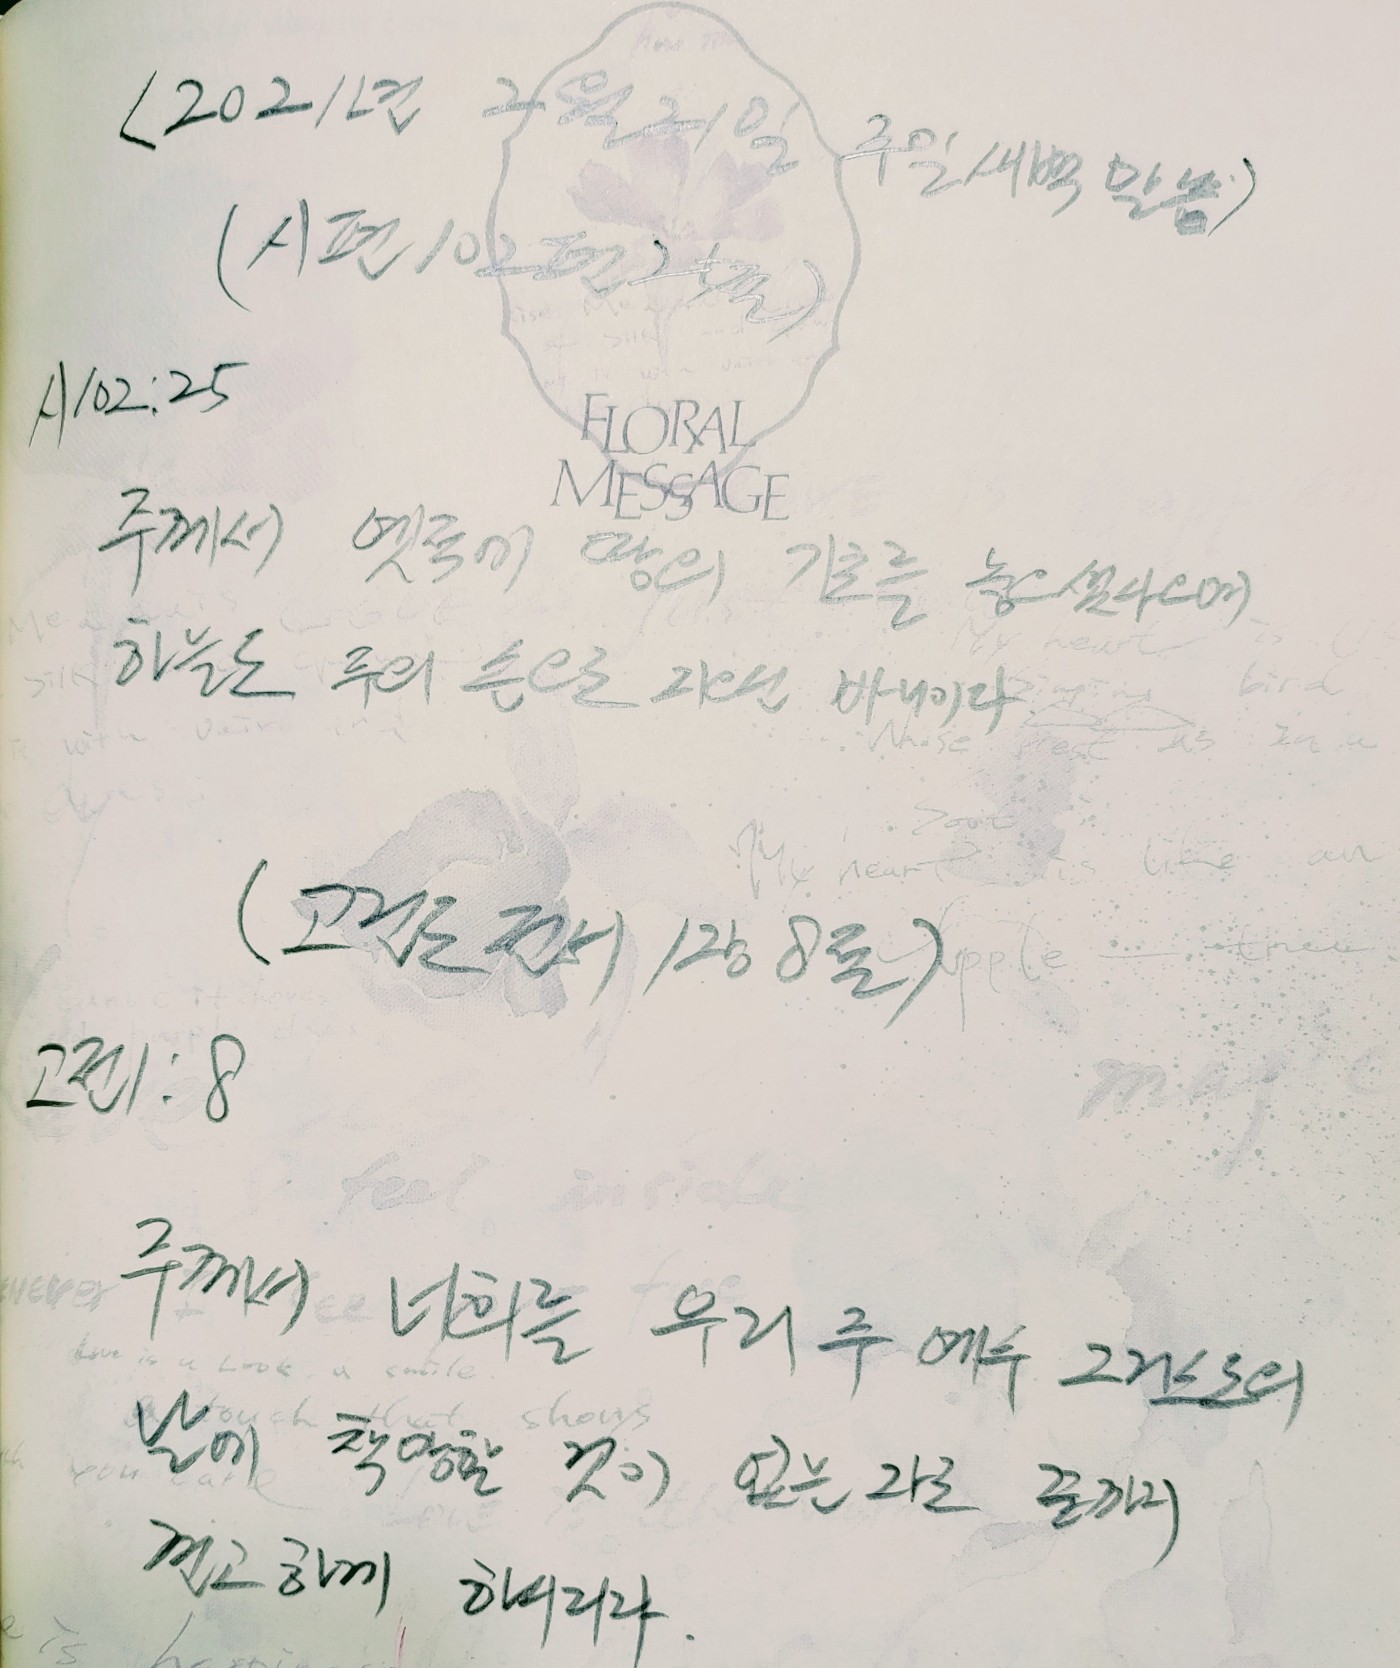 (2021년 2월 21일 주일새벽 말씀)
(시편 102편 25절)
시102:25
FLORAL
MESSAGE
주께서 옛적에 땅의 기초를 놓으셨사오며
하늘도 주의 손으로 지으신 바니이다
singing bird
My heart is like an
apple tree
(고린도 전서 1장 8절)
고전1:8
feel inside
주께서 너희를 우리 주 예수 그리스도의
love is a look a smile
a touch that shows
날에 책망할 것이 없는 자로 끝까지
you care
견고하게 하시리라.